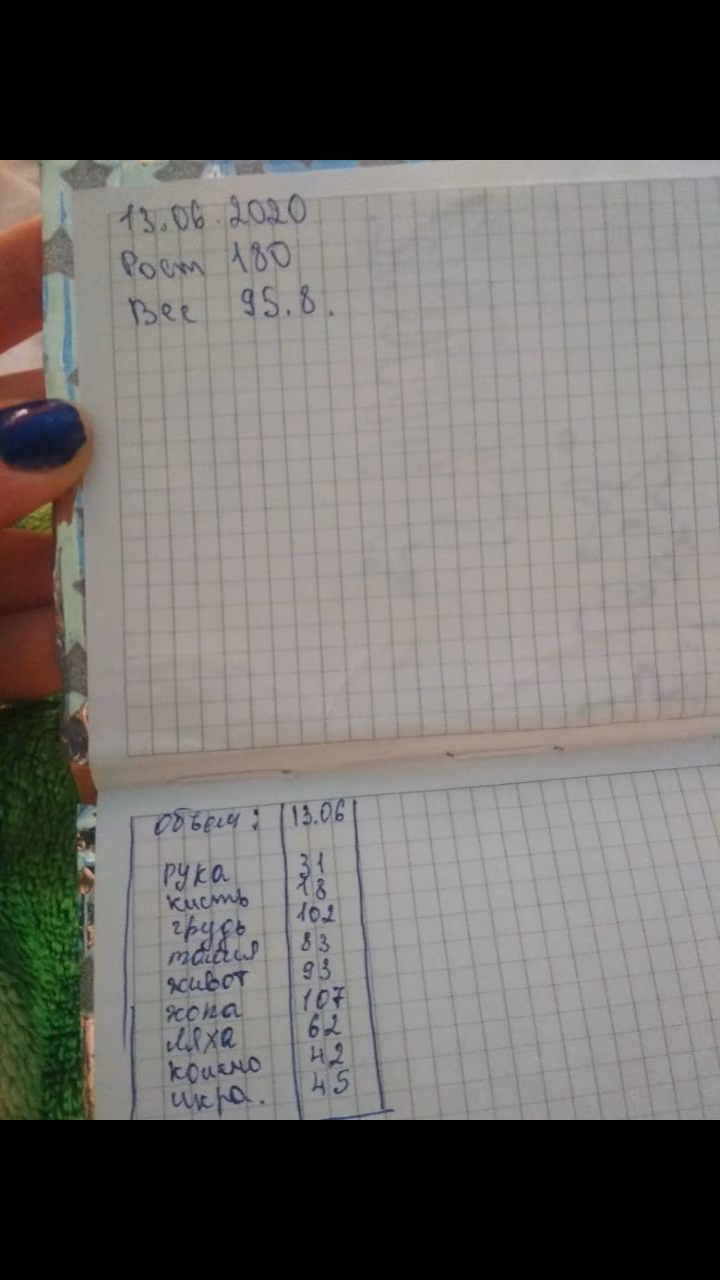 13.06.2020
Рост 180
Вес 95.8.
Объем: 13.06
рука 31
кисть 18
грудь 102
талия 83
живот 93
жопа 107
ляха 62
колено 42
икра. 45